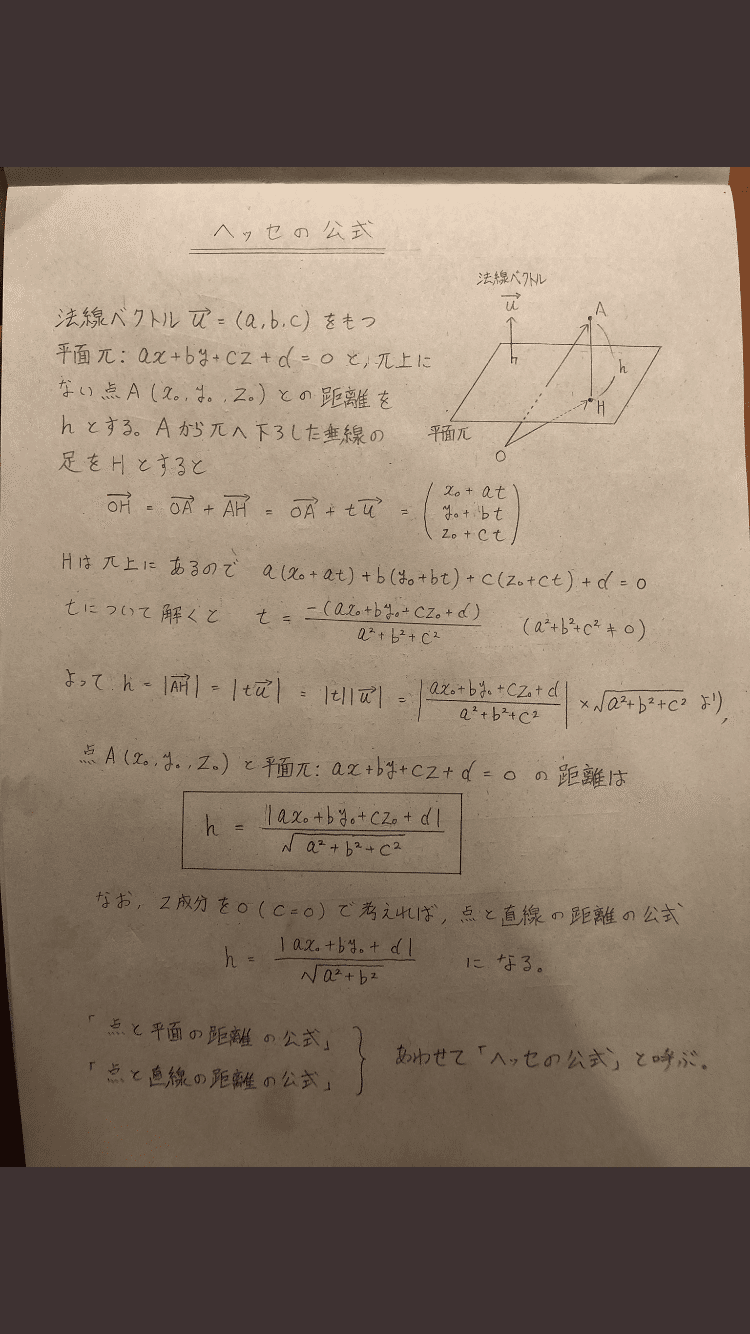 ヘッセの公式
法線ベクトル u→ = (a, b, c) をもつ
平面π: ax+by+cz+d=0 と, π上に
ない点A(x₀, y₀, z₀) との距離を
hとする。Aからπへ下ろした垂線の
足をHとすると
法線ベクトル
u→
A
h
H
平面π
O
OH→ = OA→ + AH→ = OA→ + tu→ = (x₀+at
y₀+bt
z₀+ct)
Hはπ上にあるので a(x₀+at)+b(y₀+bt)+c(z₀+ct)+d=0
tについて解くと t = -(ax₀+by₀+cz₀+d) / (a²+b²+c²) (a²+b²+c²≠0)
よって. h = |AH→| = |tu→| = |t||u→| = |(ax₀+by₀+cz₀+d) / (a²+b²+c²)| × √(a²+b²+c²) より,
点A(x₀, y₀, z₀) と平面π: ax+by+cz+d=0 の距離は
h = |ax₀+by₀+cz₀+d| / √(a²+b²+c²)
なお, z成分を0(c=0)で考えれば, 点と直線の距離の公式
h = |ax₀+by₀+d| / √(a²+b²) になる。
「点と平面の距離の公式」
「点と直線の距離の公式」
} あわせて「ヘッセの公式」と呼ぶ。